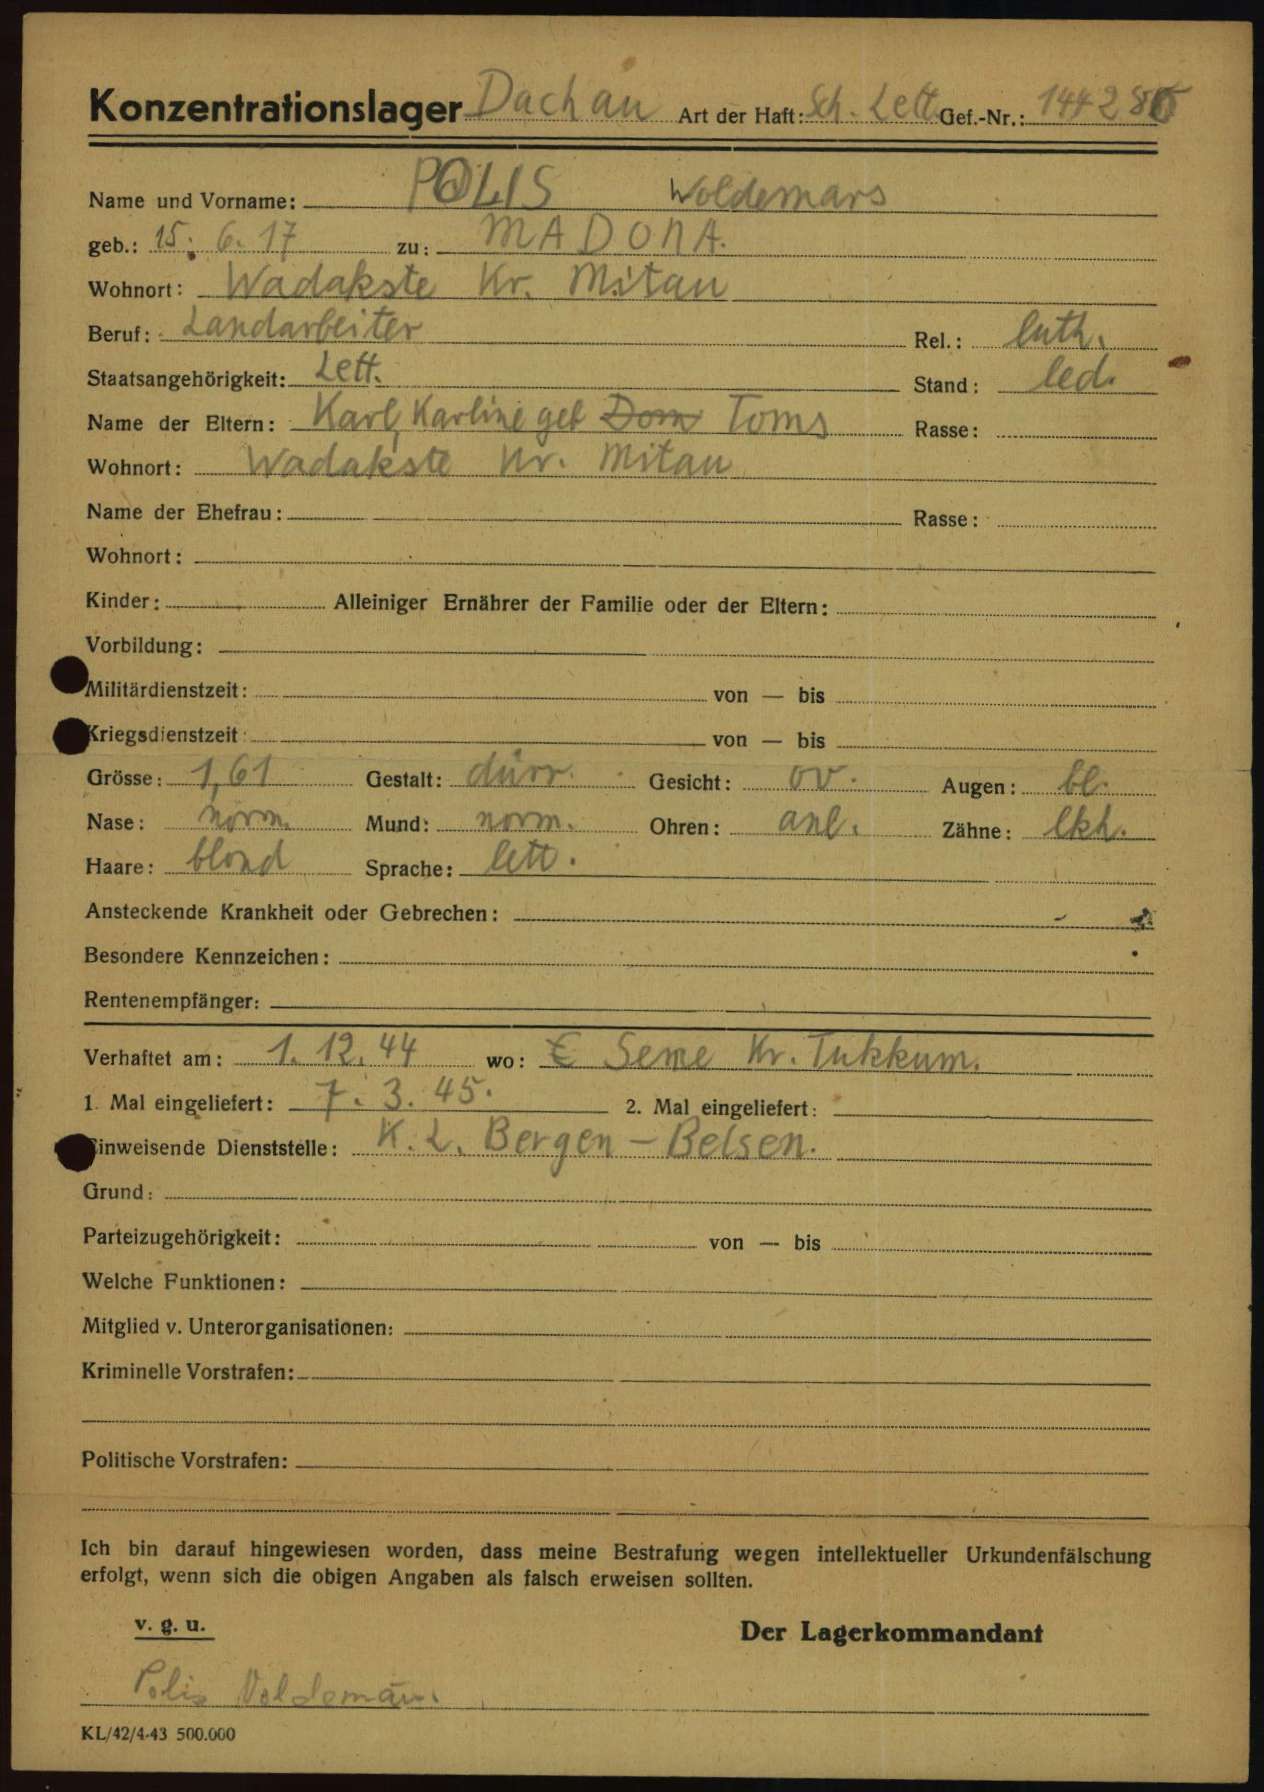 Konzentrationslager Dachau Art der Haft: Sch. Lett. Gef.-Nr.: 14428
Name und Vorname: POLIS Woldemars
geb.: 15. 6. 17 zu: MADONA.
Wohnort: Wadakste Kr. Mitau
Beruf: Landarbeiter Rel.: luth.
Staatsangehörigkeit: Lett. Stand: led.
Name der Eltern: Karl, Karline geb Dom Toms Rasse:
Wohnort: Wadakste Kr. Mitau
Name der Ehefrau: Rasse:
Wohnort:
Kinder: Alleiniger Ernährer der Familie oder der Eltern:
Vorbildung:
Militärdienstzeit: von — bis
Kriegsdienstzeit: von — bis
Grösse: 1,61 Gestalt: dürr. Gesicht: ov. Augen: bl.
Nase: norm. Mund: norm. Ohren: anl. Zähne: lkh.
Haare: blond Sprache: lett.
Ansteckende Krankheit oder Gebrechen:
Besondere Kennzeichen:
Rentenempfänger:
Verhaftet am: 1. 12. 44 wo: Seme Kr. Tukkum.
1. Mal eingeliefert: 7. 3. 45. 2. Mal eingeliefert:
Einweisende Dienststelle: K. L. Bergen - Belsen.
Grund:
Parteizugehörigkeit: von — bis
Welche Funktionen:
Mitglied v. Unterorganisationen:
Kriminelle Vorstrafen:
Politische Vorstrafen:
Ich bin darauf hingewiesen worden, dass meine Bestrafung wegen intellektueller Urkundenfälschung
erfolgt, wenn sich die obigen Angaben als falsch erweisen sollten.
v. g. u. Der Lagerkommandant
Polis Voldemārs
KL/42/4-43 500.000